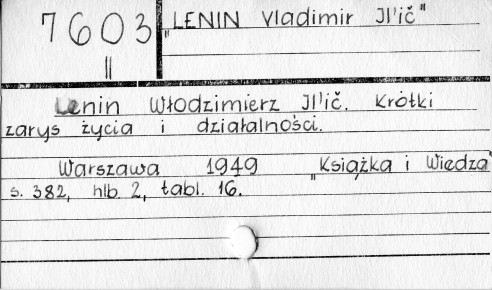 7603
II
„LENIN Vladimir Il'ič"
Lenin Włodzimierz Il'ič. Krótki
zarys życia i działalności.
Warszawa 1949 „Książka i Wiedza"
s. 382, nlb. 2, tabl. 16.